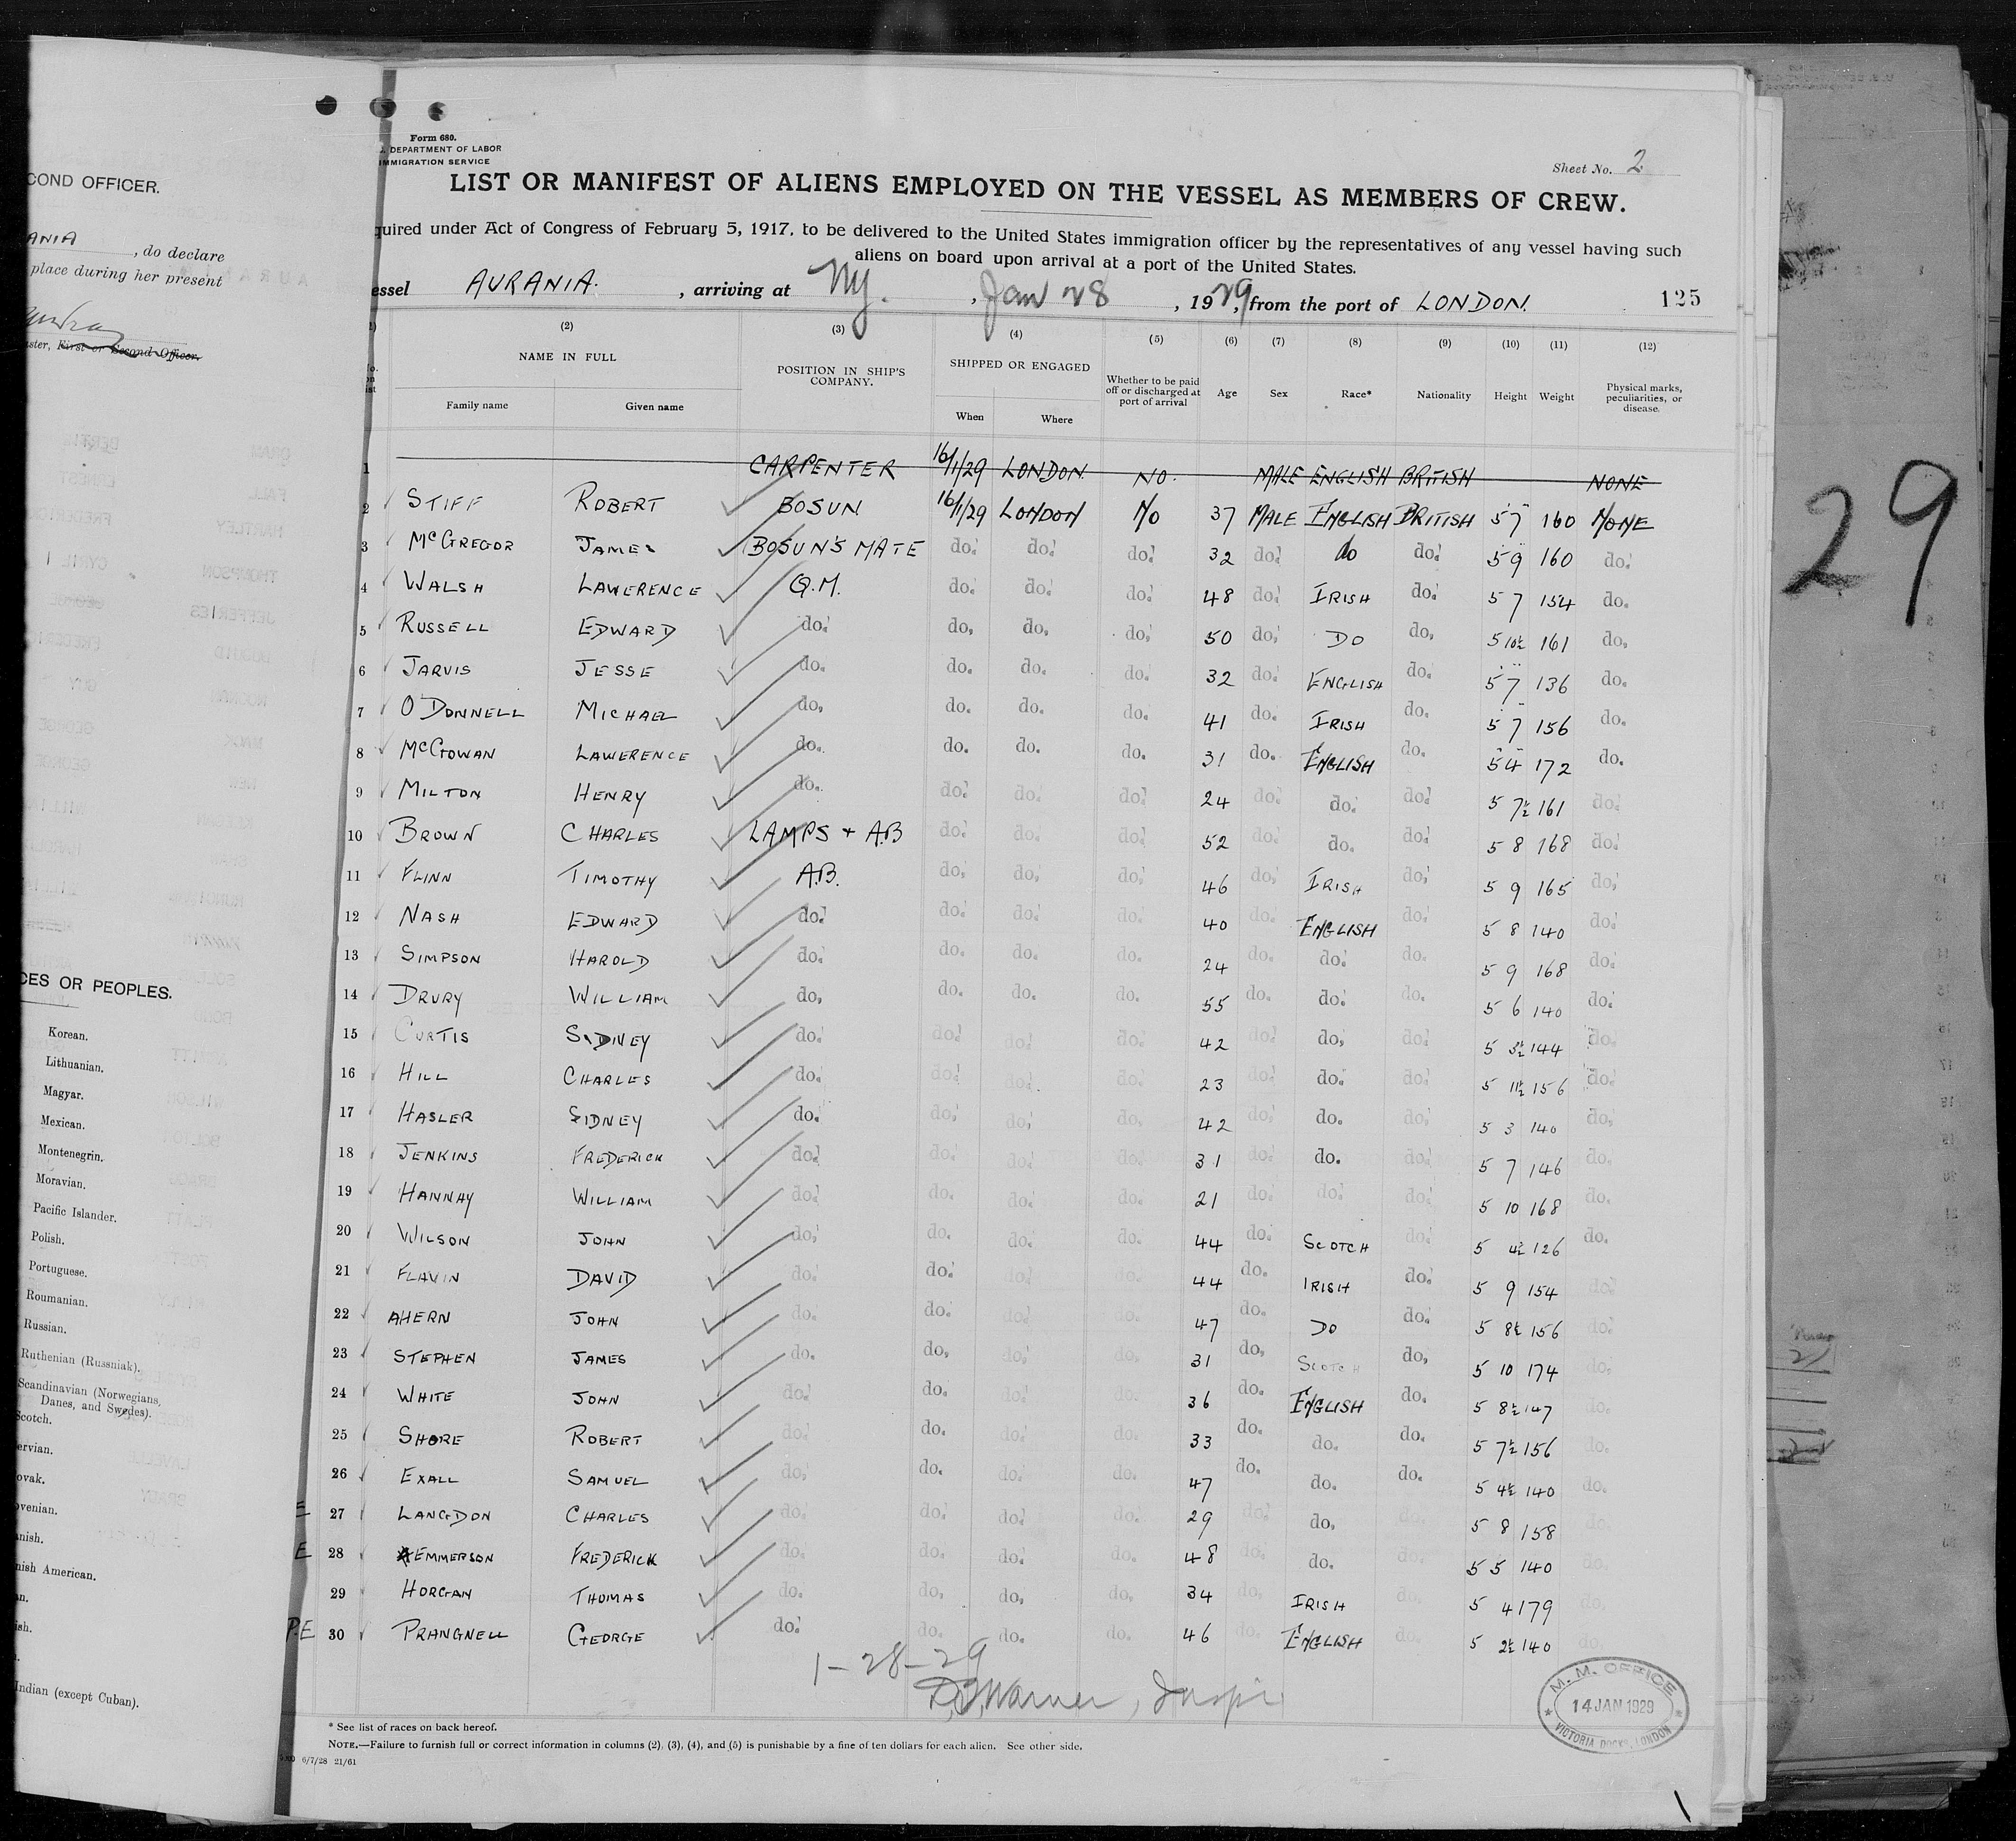 COND OFFICER.
ANIA, do declare
place during her present
ster, First or Second Officer.
CES OR PEOPLES.
Korean.
Lithuanian.
Magyar.
Mexican.
Montenegrin.
Moravian.
Pacific Islander.
Polish.
Portuguese.
Roumanian.
Russian.
Ruthenian (Russniak).
Scandinavian (Norwegians,
Danes, and Swedes).
Scotch.
ervian.
ovak.
ovenian.
anish.
nish American.
Indian (except Cuban).
Form 680.
DEPARTMENT OF LABOR
IMMIGRATION SERVICE
Sheet No. 2
LIST OR MANIFEST OF ALIENS EMPLOYED ON THE VESSEL AS MEMBERS OF CREW.
quired under Act of Congress of February 5, 1917, to be delivered to the United States immigration officer by the representatives of any vessel having such
aliens on board upon arrival at a port of the United States.
essel AURANIA. , arriving at NY. , Jan 28 , 1929, from the port of LONDON. 125
(2) (3) (4) (5) (6) (7) (8) (9) (10) (11) (12)
NAME IN FULL POSITION IN SHIP'S COMPANY. SHIPPED OR ENGAGED Whether to be paid off or discharged at port of arrival Age Sex Race* Nationality Height Weight Physical marks, peculiarities, or disease.
Family name Given name When Where
1 CARPENTER 16/1/29 LONDON NO. MALE ENGLISH BRITISH NONE
2 STIFF ROBERT BOSUN 16/1/29 LONDON NO 37 MALE ENGLISH BRITISH 5 7 160 NONE
3 McGREGOR JAMES BOSUN'S MATE do. do. do. 32 do. do do. 5 9 160 do.
4 WALSH LAWERENCE Q.M. do. do. do. 48 do. IRISH do. 5 7 154 do.
5 RUSSELL EDWARD do. do. do. do. 50 do. DO do. 5 10½ 161 do.
6 JARVIS JESSE do. do. do. do. 32 do. ENGLISH do. 5 7 136 do.
7 O'DONNELL MICHAEL do. do. do. do. 41 do. IRISH do. 5 7 156 do.
8 McGOWAN LAWERENCE do. do. do. do. 31 do. ENGLISH do. 5 4 172 do.
9 MILTON HENRY do. do. do. do. 24 do. do. do. 5 7½ 161 do.
10 BROWN CHARLES LAMPS + A.B do. do. do. 52 do. do. do. 5 8 168 do.
11 FLINN TIMOTHY A.B. do. do. do. 46 do. IRISH do. 5 9 165 do.
12 NASH EDWARD do. do. do. do. 40 do. ENGLISH do. 5 8 140 do.
13 SIMPSON HAROLD do. do. do. do. 24 do. do. do. 5 9 168 do.
14 DRURY WILLIAM do. do. do. do. 55 do. do. do. 5 6 140 do.
15 CURTIS SIDNEY do. do. do. do. 42 do. do. do. 5 144 do.
16 HILL CHARLES do. do. do. do. 23 do. do. do. 5 11½ 156 do.
17 HASLER SIDNEY do. do. do. do. 42 do. do. do. 5 3 140 do.
18 JENKINS FREDERICK do. do. do. do. 31 do. do. do. 5 7 146 do.
19 HANNAY WILLIAM do. do. do. do. 21 do. do. do. 5 10 168 do.
20 WILSON JOHN do. do. do. do. 44 do. SCOTCH do. 5 4½ 126 do.
21 FLAVIN DAVID do. do. do. do. 44 do. IRISH do. 5 9 154 do.
22 AHERN JOHN do. do. do. do. 47 do. DO do. 5 8½ 156 do.
23 STEPHEN JAMES do. do. do. do. 31 do. SCOTCH do. 5 10 174 do.
24 WHITE JOHN do. do. do. do. 36 do. ENGLISH do. 5 8½ 147 do.
25 SHORE ROBERT do. do. do. do. 33 do. do. do. 5 7½ 156 do.
26 EXALL SAMUEL do. do. do. do. 47 do. do. do. 5 4½ 140 do.
E 27 LANGDON CHARLES do. do. do. do. 29 do. do. do. 5 8 158 do.
E 28 EMMERSON FREDERICK do. do. do. do. 48 do. do. do. 5 5 140 do.
29 HORGAN THOMAS do. do. do. do. 34 do. IRISH do. 5 4 179 do.
P.E 30 PRANGNELL GEORGE do. do. do. do. 46 do. ENGLISH do. 5 2½ 140 do.
1-28-29
Warner, Inspr
M. M. OFFICE
14 JAN 1929
VICTORIA DOCKS, LONDON
* See list of races on back hereof.
NOTE.—Failure to furnish full or correct information in columns (2), (3), (4), and (5) is punishable by a fine of ten dollars for each alien. See other side.
6/7/28 21/61
29